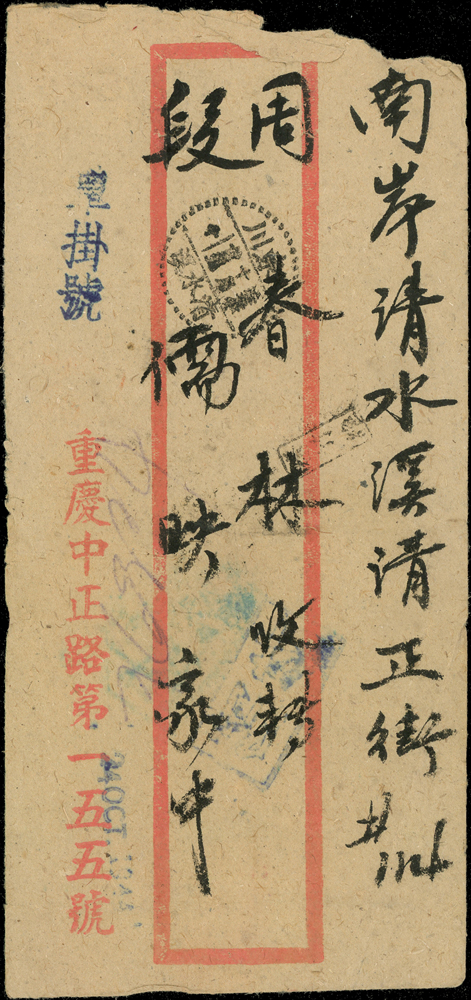 南岸清水溪清正街
周春林收轉
段儒映家中
單掛號
重慶中正路第一五五號
24 OCT